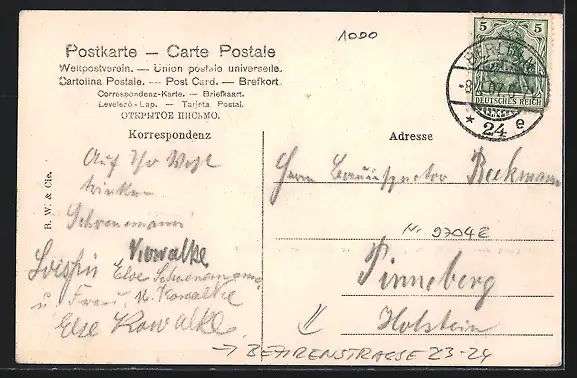 Postkarte – Carte Postale
Weltpostverein. — Union postale universelle.
Cartolina Postale. — Post Card. — Brefkort.
Correspondenz-Karte. — Briefkaart.
Levelező-Lap. — Tarjeta Postal.
ОТКРЫТОЕ ПИСЬМО.
1000
5 5
DEUTSCHES REICH
BERLIN
* 24 e
Korrespondenz
Adresse
B. W. & Cie.
Auf Ihr Wohl
trinken
Schoenemann
Kowalke
Else Schoenemann
u Frau, u. Kowalke
Else Kowalke
Herrn Bauinspector Reekmann
Nr 9704E
Pinneberg
Holstein
→ BEHRENSTRASSE 23-24